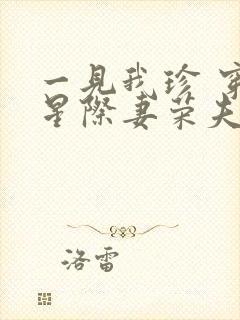 一見我珍 穿
星際妻荣夫
洛雷